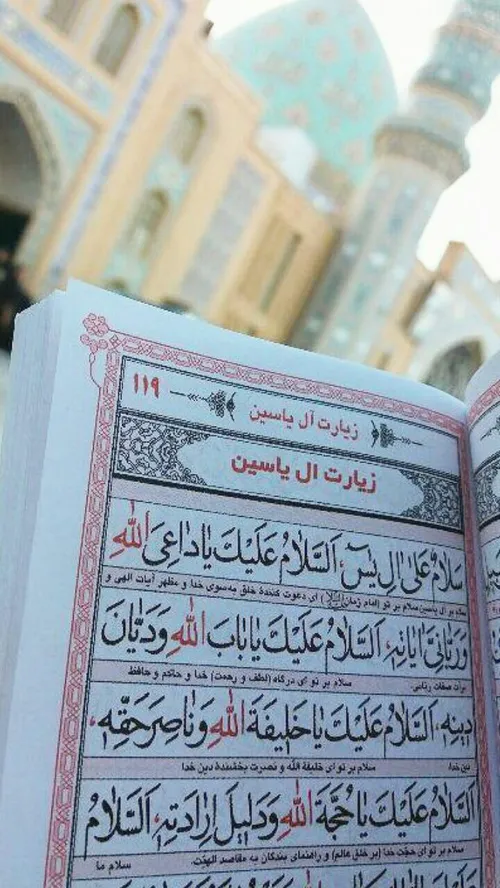 ۱۱۹
زیارت آل یاسین
زیارت ال یاسین
سَلامٌ عَلىٰ الِ يٰسٓ، اَلسَّلامُ عَلَيْكَ يا داعِىَ اللهِ
بر ال یاسین سلام بر تو (امام زمان) ای دعوت کنندهٔ خلق به‌سوی خدا و مظهر آیات الهی و
وَرَبّانِىَّ اٰياتِهِ، اَلسَّلامُ عَلَيْكَ يا بابَ اللهِ وَدَيّانَ
مرآت صفات ربّانی. سلام بر تو ای درگاه (لطف و رحمت) خدا و حاکم و حافظ
دينِهِ، اَلسَّلامُ عَلَيْكَ يا خَليفَةَ اللهِ وَناصِرَ حَقِّهِ،
دین خدا. سلام بر تو ای خلیفة اللّه و نصرت بخشندهٔ دین خدا
اَلسَّلامُ عَلَيْكَ يا حُجَّةَ اللهِ وَدَليلَ اِرادَتِهِ، اَلسَّلامُ
سلام بر تو ای حجّت خدا (بر خلق عالم) و راهنمای بندگان به مقاصد الهیّت. سلام ما